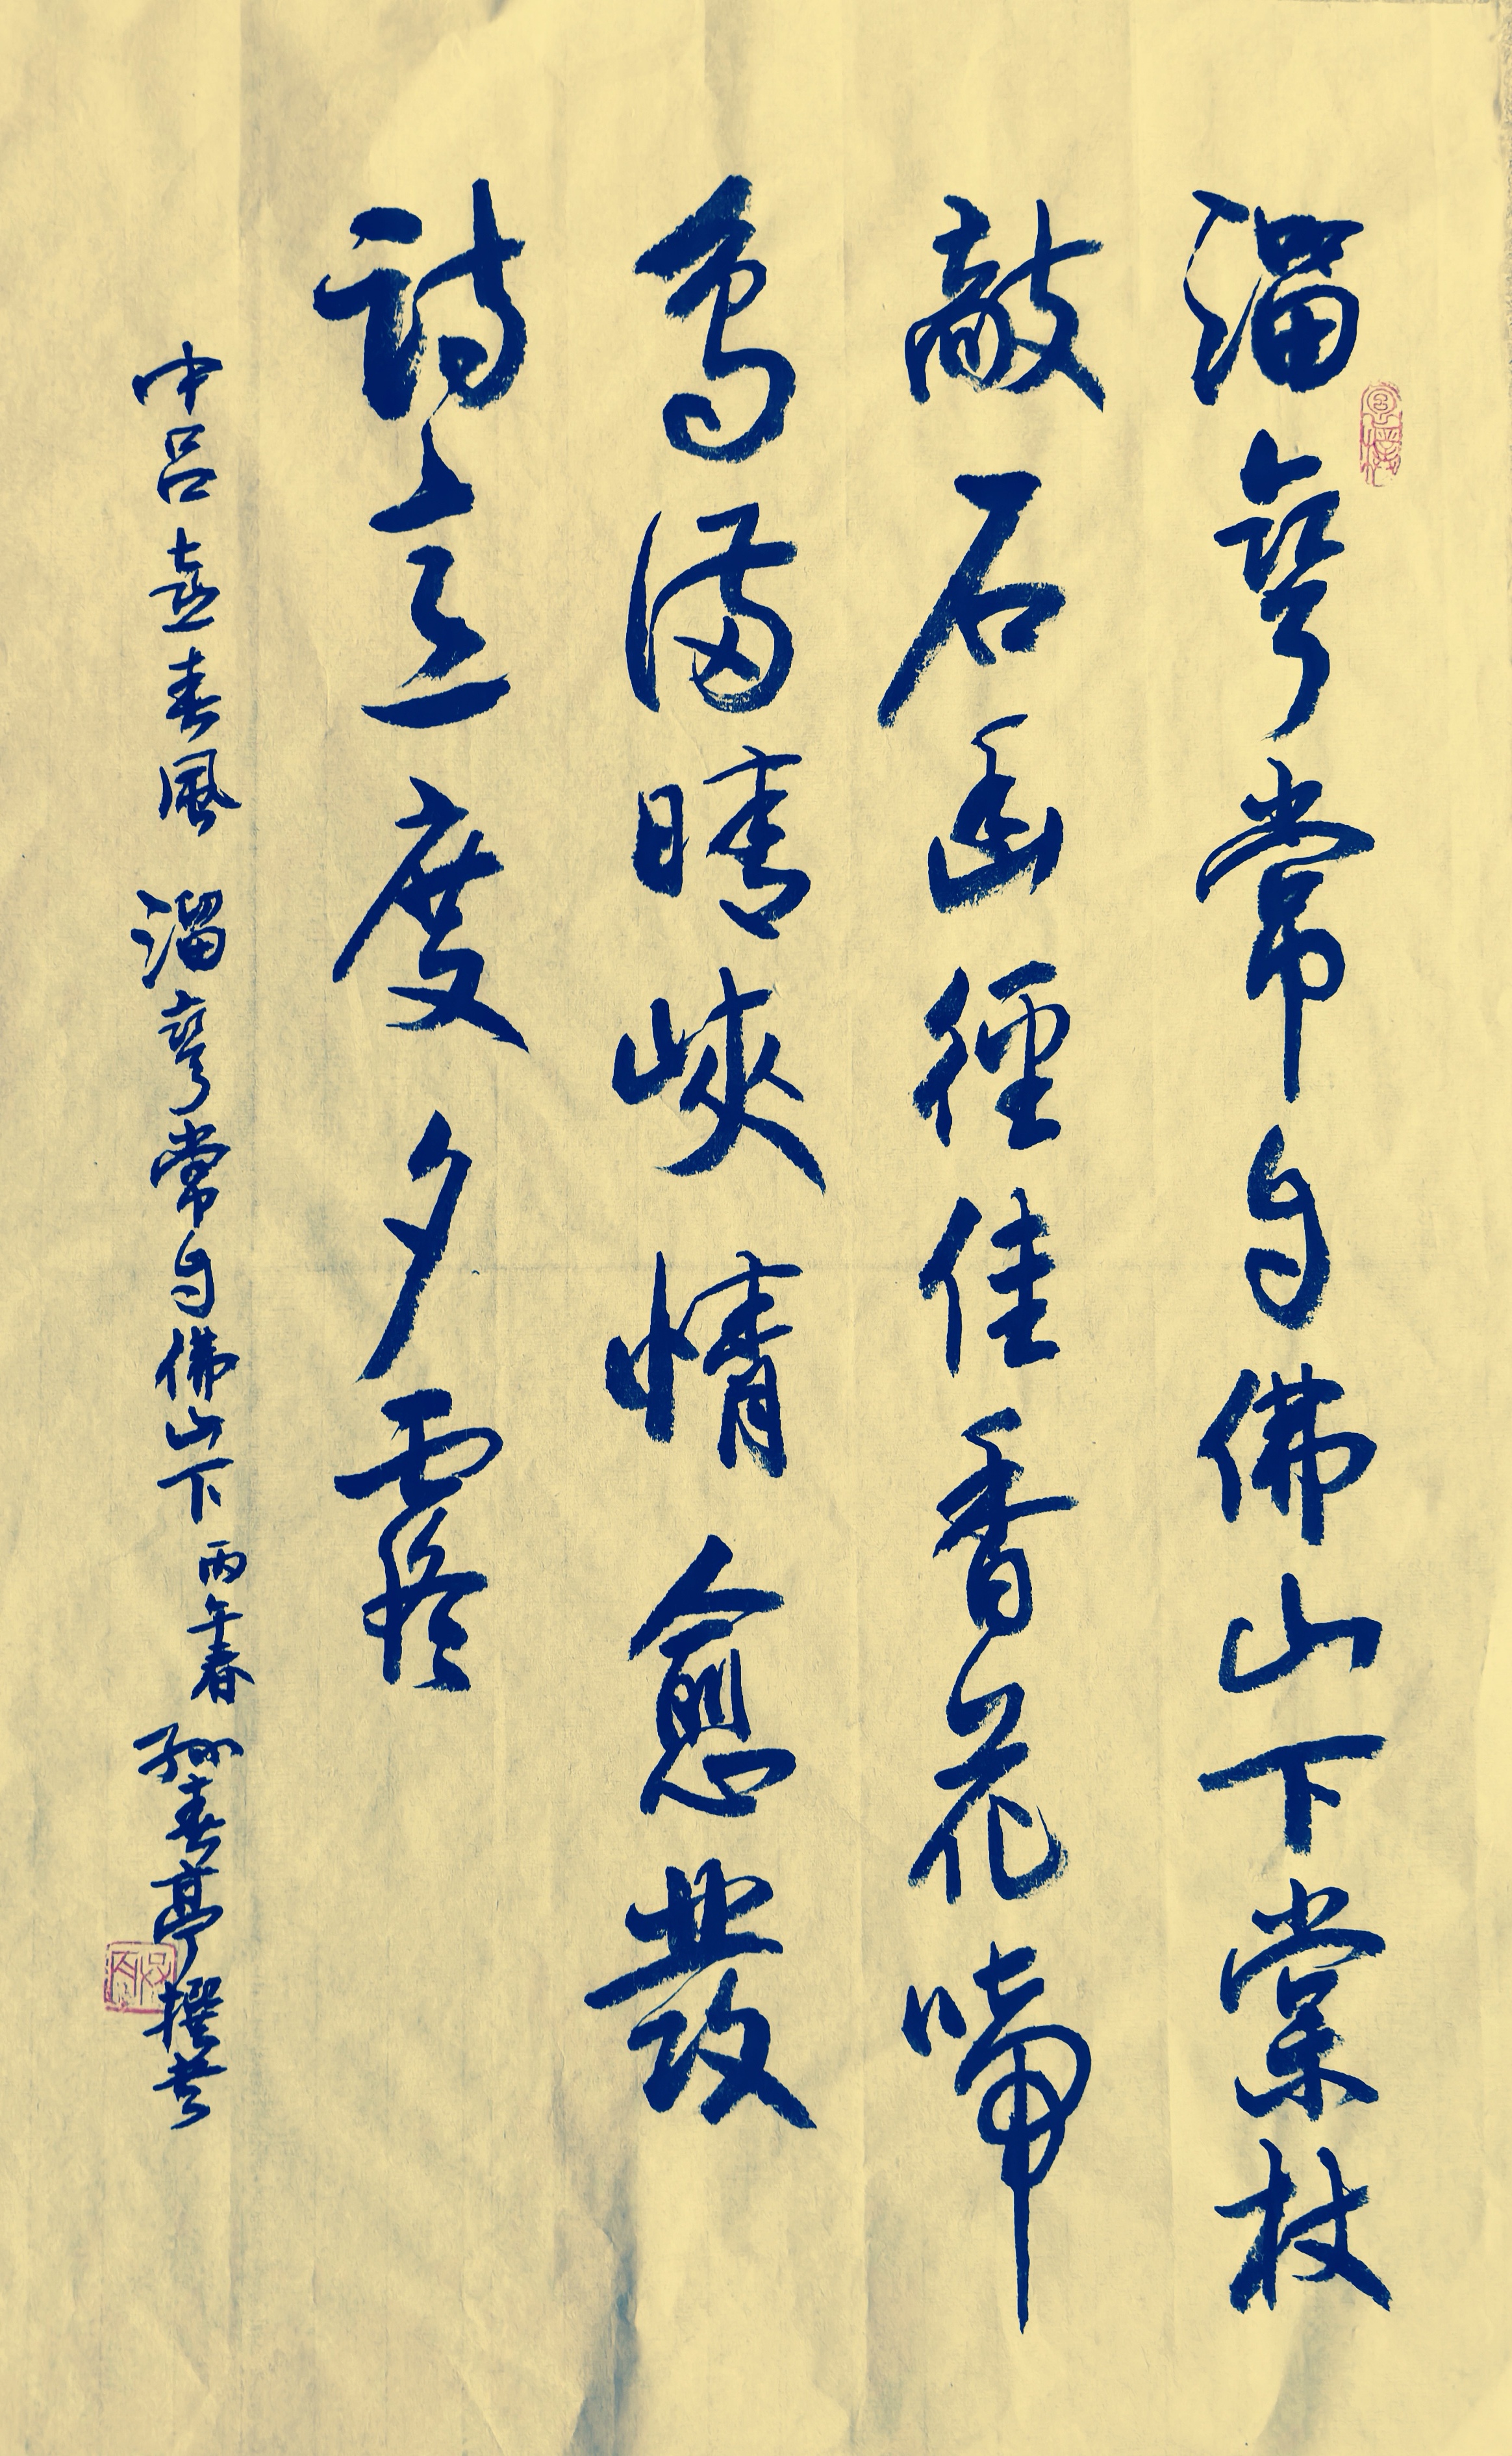 溜彎常自佛山下棠杖
敲石幽徑佳香花啼
鳥滿晴峽情愈發
詩意度夕霞
中呂喜春風 溜彎常自佛山下 丙午春 孫春亭撰書